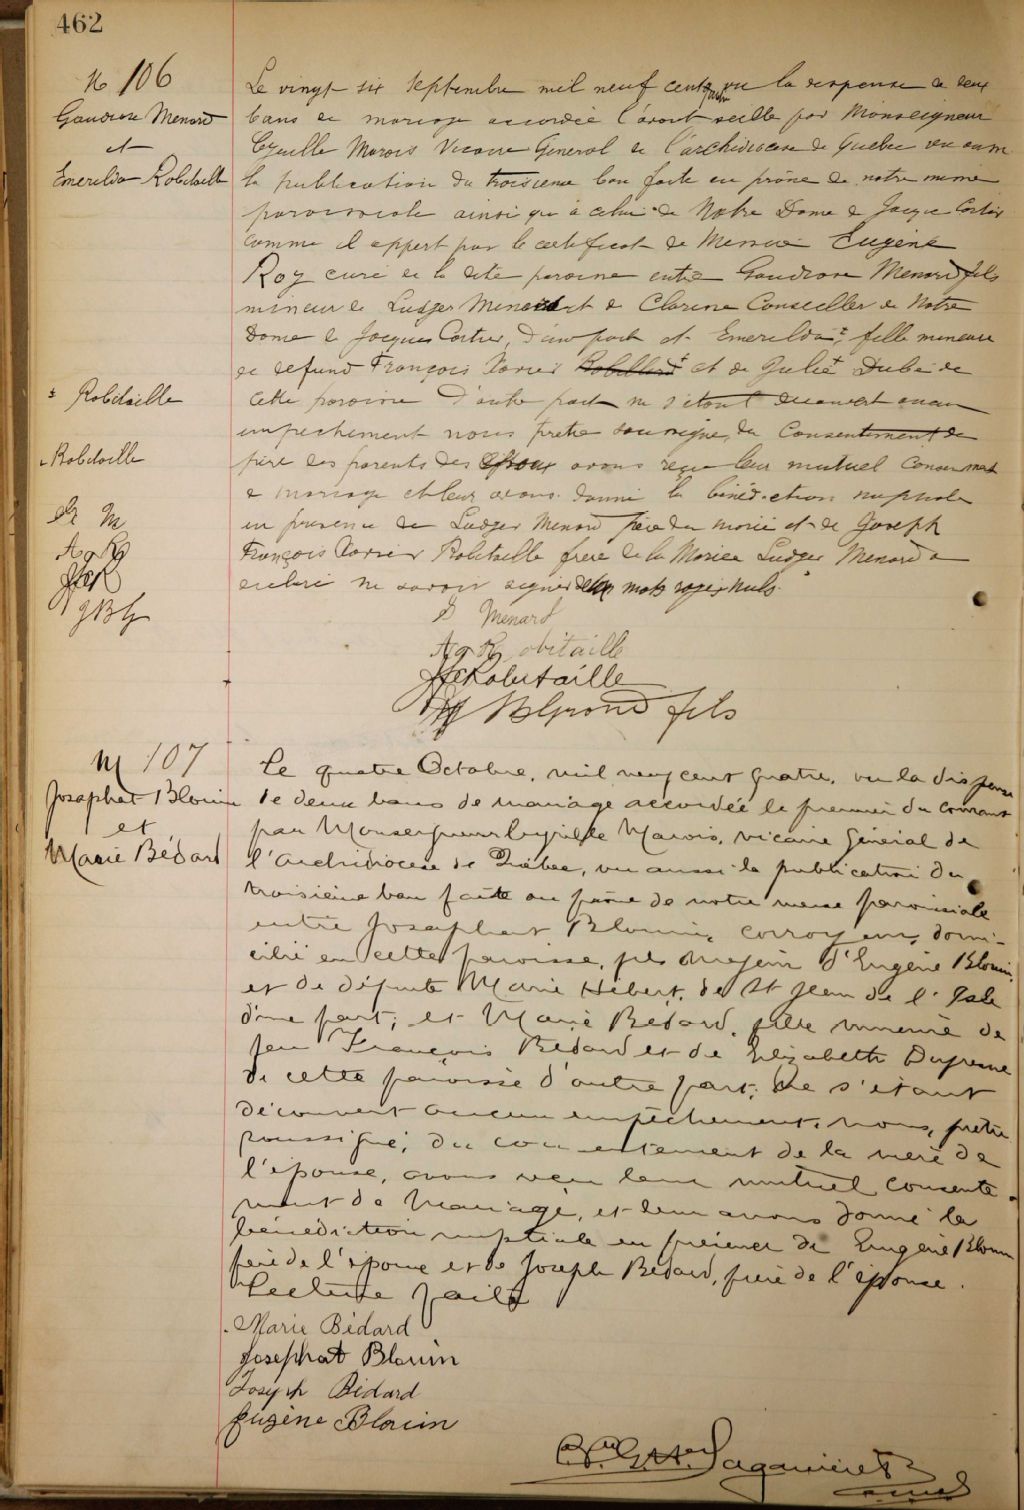 462
M 106
Gaudiose Menard
et
Emerilda Robitaille
Le vingt six Septembre mil neuf cent quatre vu la dispense de deux
bans de mariage accordée l'avant veille par Monseigneur
Cyrille Marois Vicaire Général de l'archidiocèse de Quebec vu aussi
la publication du troisieme ban faite au prône de notre messe
paroissiale ainsi qu'à celui de Notre Dame de Jacques Cartier
comme il appert par le certificat de Messire Eugène
Roy curé de la dite paroisse entre Gaudiose Menard fils
mineur de Ludger Menard et de Clarisse Conseiller de Notre
Dame de Jacques Cartier, d'une part et Emerilda ± fille mineure
de defunt François Xavier Robillard ± et de Julie Dubé de
cette paroisse d'autre part ne s'étant découvert aucun
empêchement nous pretre soussigné, du consentement de
père des parents des époux avons reçu leur mutuel consentement
de mariage et leur avons donné la bénédiction nuptiale
en presence de Ludger Menard père du marié et de Joseph
François Xavier Robitaille frere de la Mariée Ludger Menard a
déclaré ne savoir signer deux mots rayés nuls.
± Robitaille
Robitaille
G M
A R
JFXR
JBG
G Menard
Robitaille
JFX Robitaille
B Girond fils
M 107
Josaphat Blouin
et
Marie Bédard
Le quatre Octobre, mil neuf cent quatre, vu la dispense
de deux bans de mariage accordée le premier du courant
par Monseigneur Cyrille Marois, vicaire général de
l'Archidiocèse de Québec, vu aussi la publication du
troisième ban faite au prône de notre messe paroissiale
entre Josaphat Blouin, corroyeur, domi-
cilié en cette paroisse, fils majeur d'Eugène Blouin,
et de défunte Marie Hébert, de St Jean de l'Isle
d'une part; et Marie Bédard, fille mineure de
feu François Bédard et de Elizabeth Dufresne
de cette paroisse d'autre part; Ne s'étant
découvert aucun empêchement, nous, prêtre
soussigné, du consentement de la mère de
l'épouse, avons reçu leur mutuel consente-
ment de mariage, et leur avons donné la
bénédiction nuptiale en présence de Eugène Blouin
père de l'époux et de Joseph Bédard, frère de l'épouse.
Lecture faite
Marie Bédard
Josephat Blouin
Joseph Bédard
Eugène Blouin